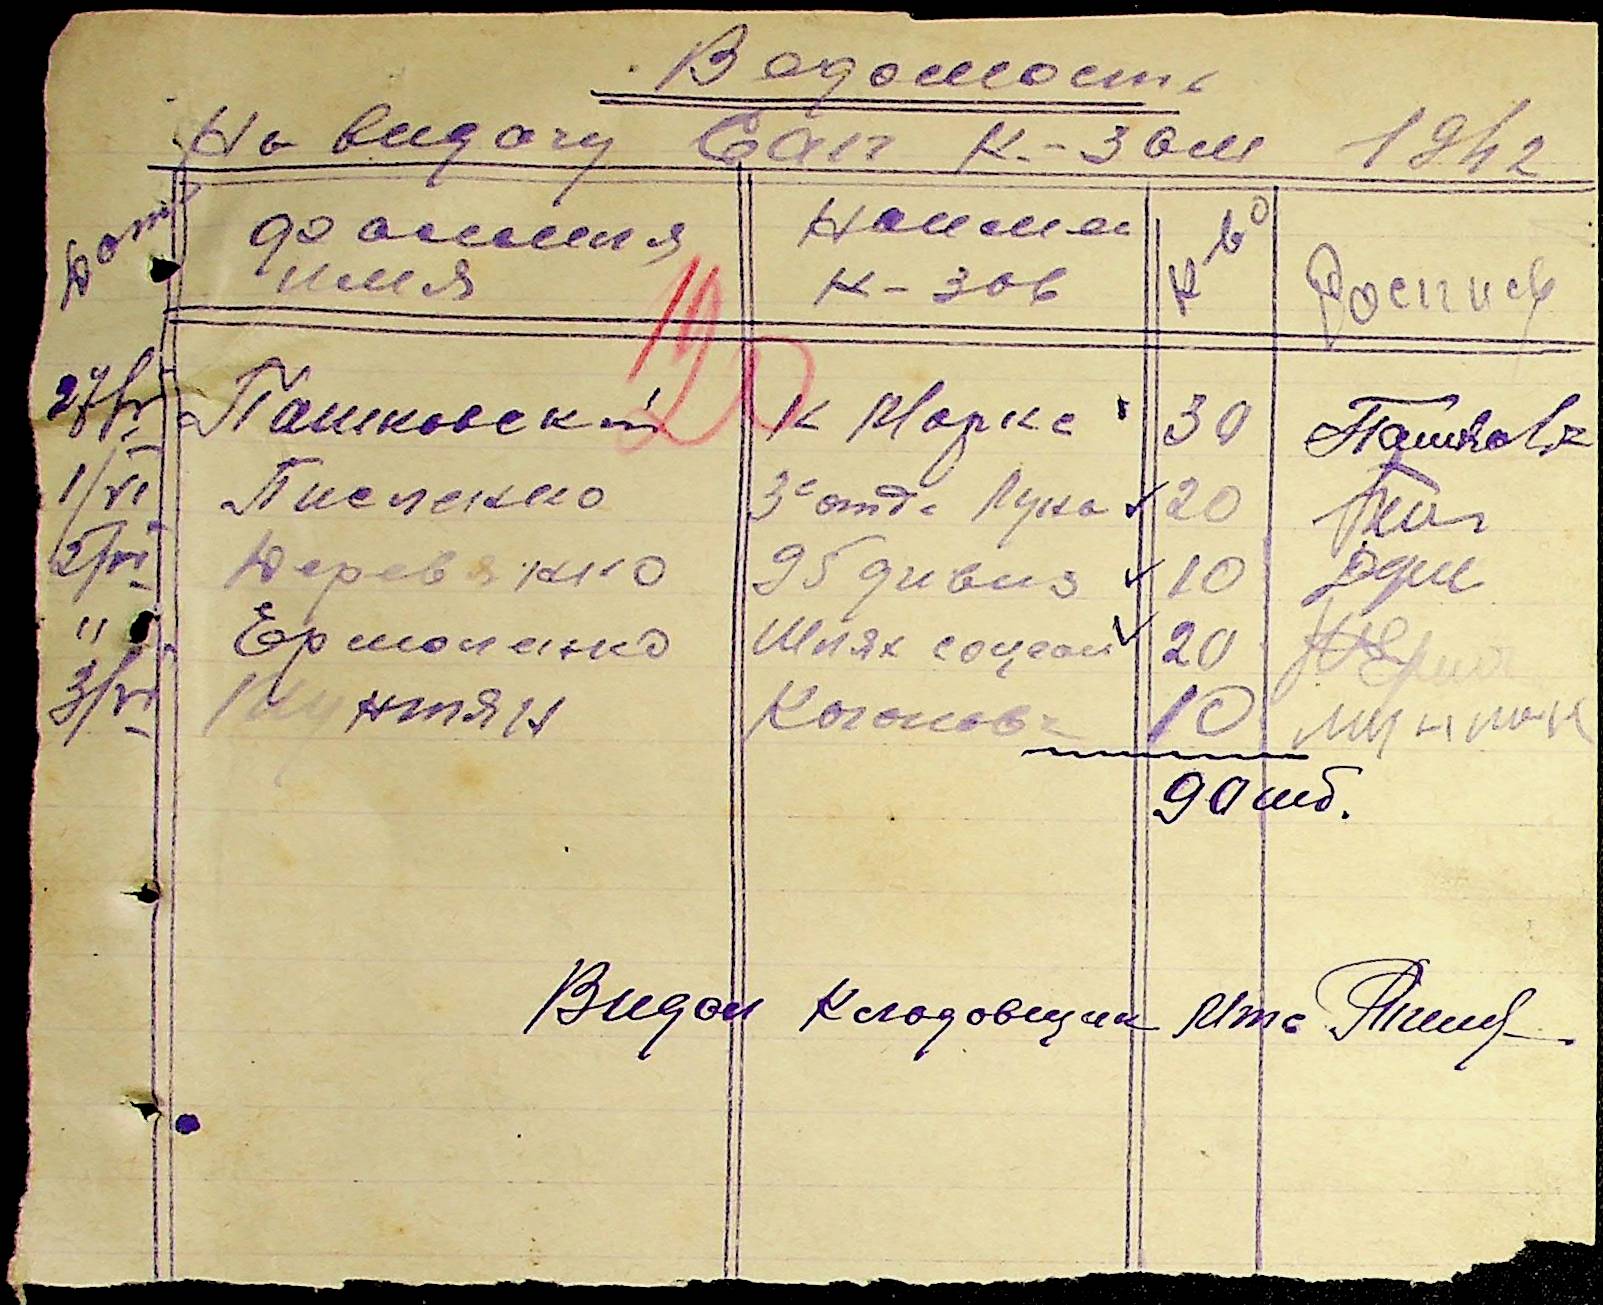 Ведомость
На видачу Сап К.-зам 1942
Дата Фамилия имя Наимен к-зов К-во Роспись
27/V Пашковский К Маркс 30 Пашковск
1/VI Писленко 3е отд. Лука 20 Пис
2/VI Деревянко 95 дивиз 10 Дере
" Ермоленко Шлях соцеал 20 Ермо
3/VI Мунтян 10 Мунтян
90 шт.
120
Видал Кладовщик Мтс